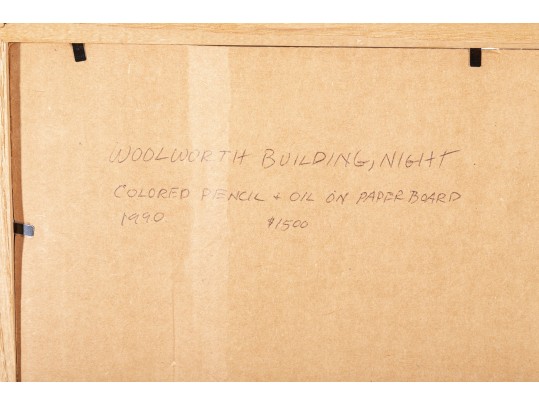 WOOLWORTH BUILDING, NIGHT
COLORED PENCIL + OIL ON PAPER BOARD
1990 $1500